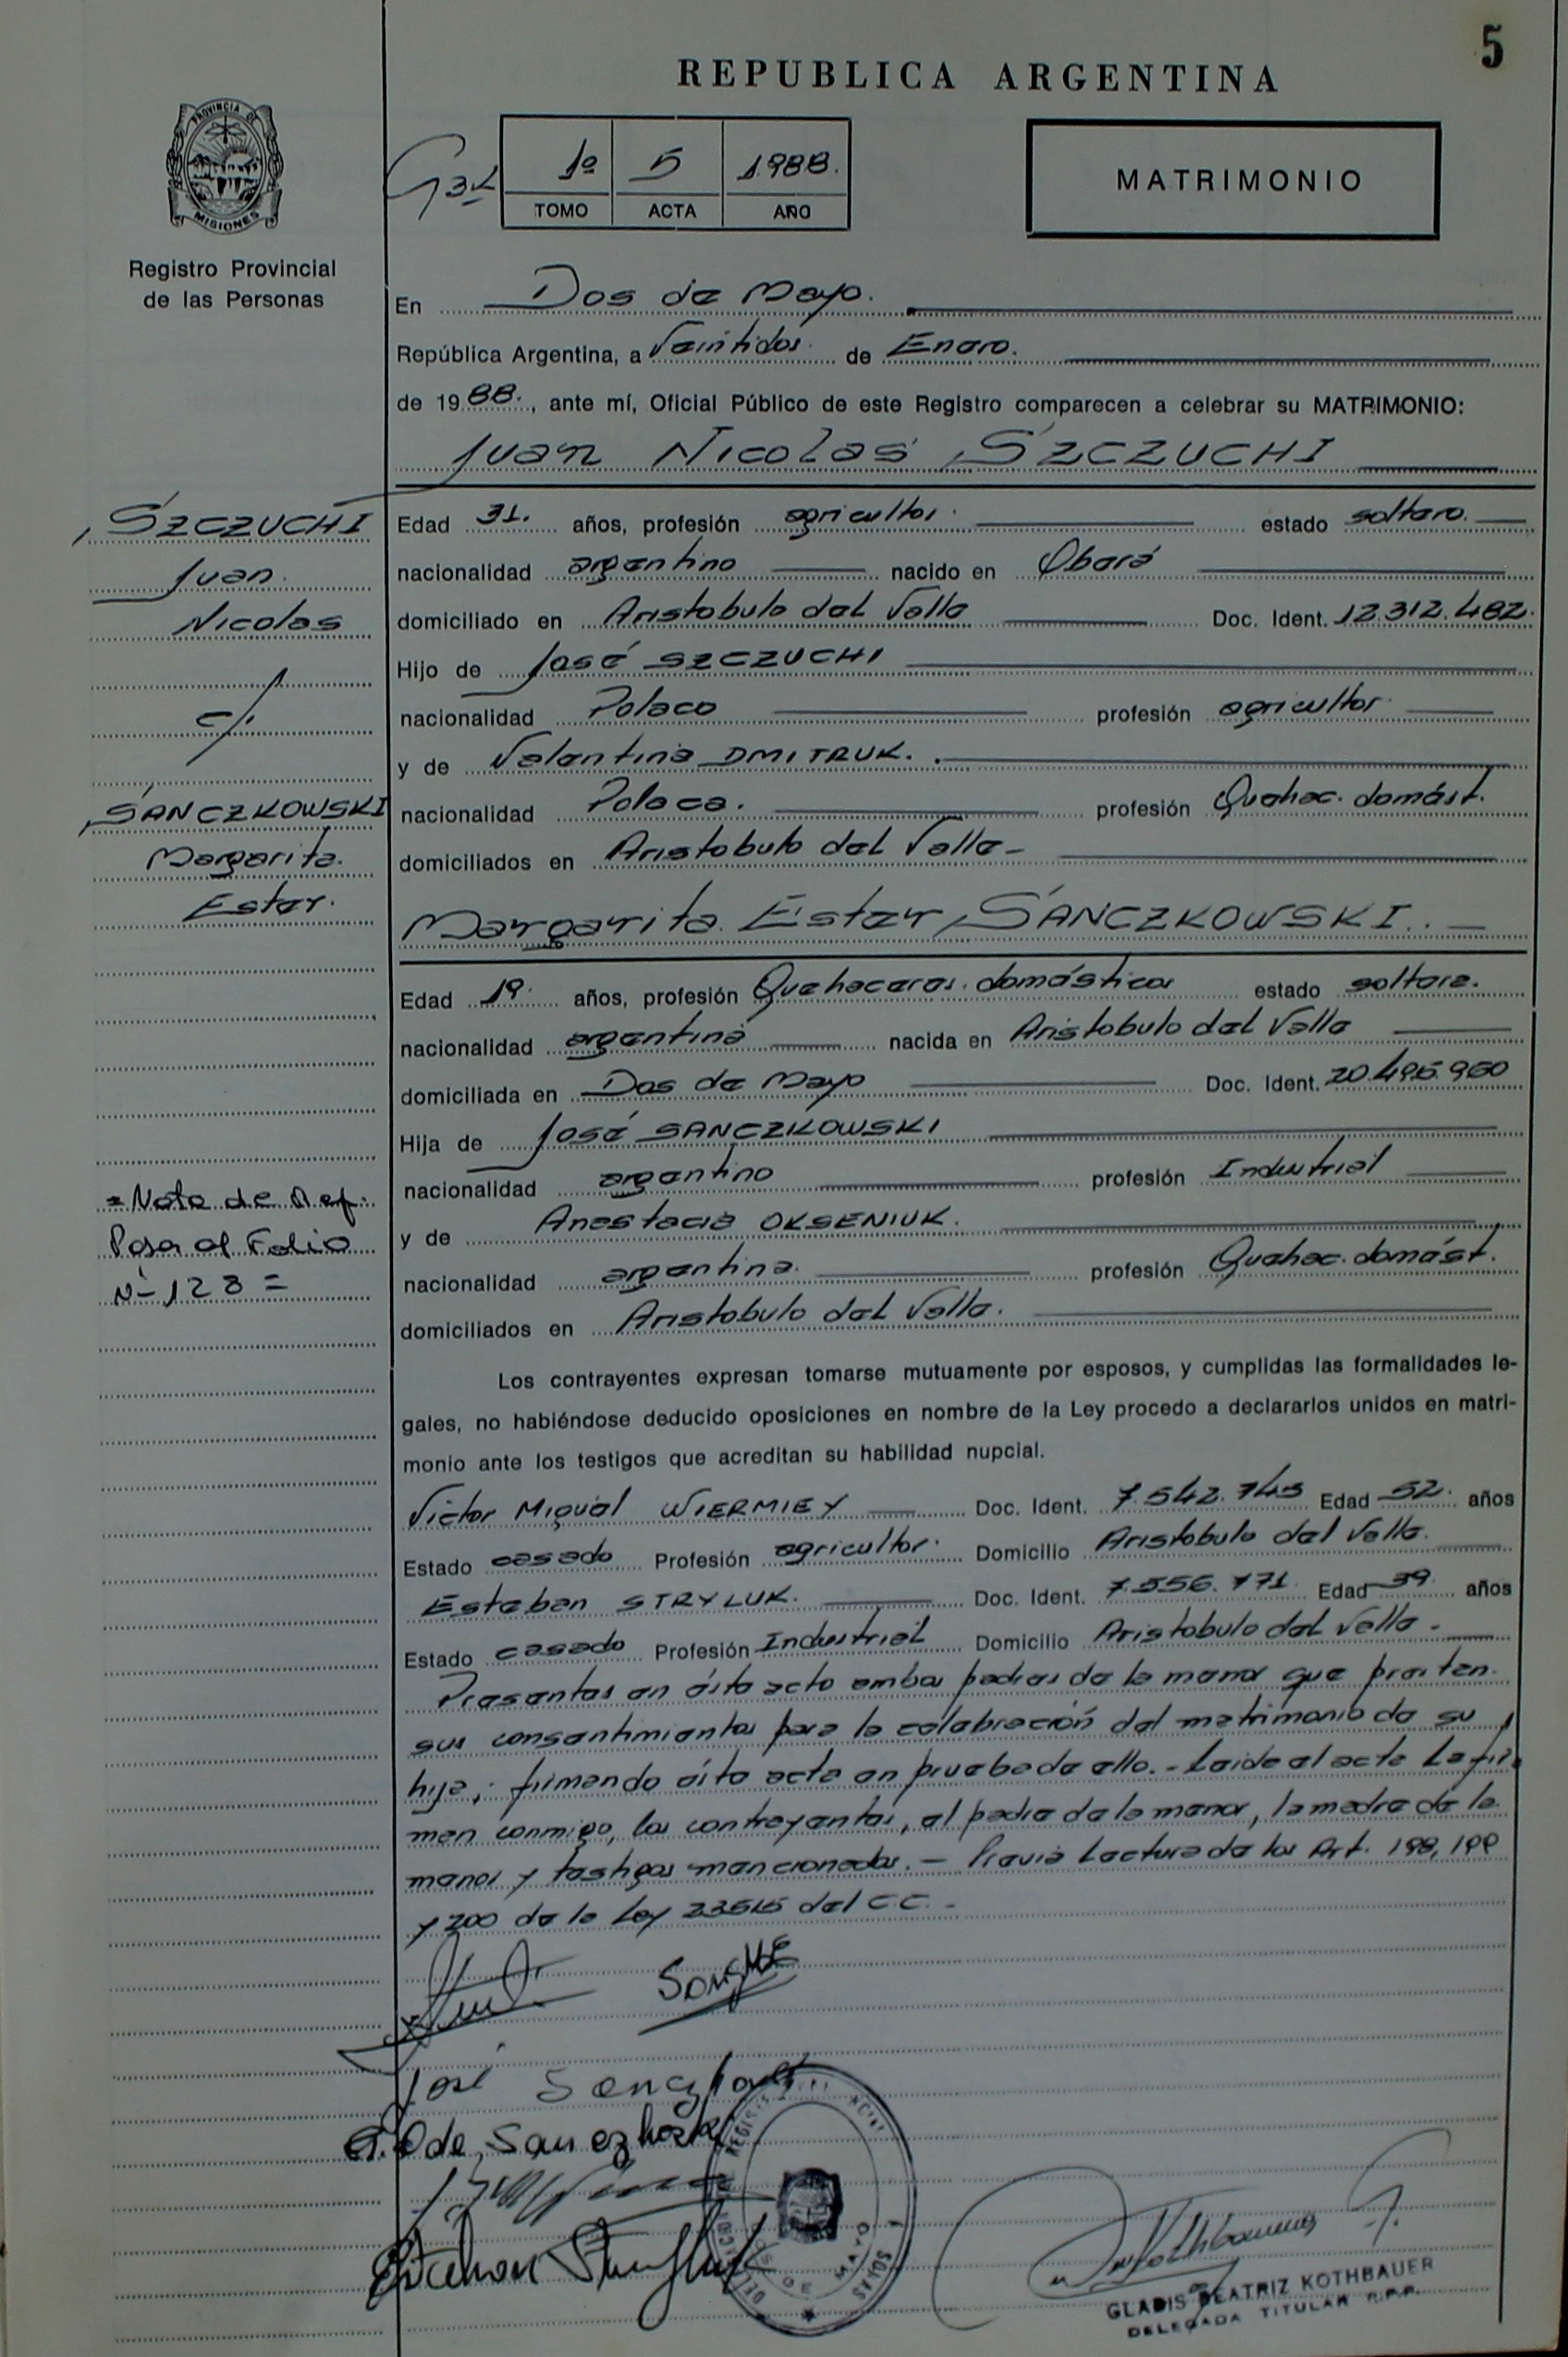 5
REPUBLICA ARGENTINA
PROVINCIA DE
MISIONES
Registro Provincial
de las Personas
1º 5 1.988.
TOMO ACTA AÑO
MATRIMONIO
En Dos de Mayo.
República Argentina, a Veintidos de Enero.
de 1988., ante mí, Oficial Público de este Registro comparecen a celebrar su MATRIMONIO:
Juan Nicolas SZCZUCHI
SZCZUCHI
Juan
Nicolas
c/.
SANCZKOWSKI
Margarita.
Ester.
Edad 31. años, profesión agricultor. estado soltero.
nacionalidad argentino nacido en Oberá
domiciliado en Aristobulo del Valle Doc. Ident. 12.312.482.
Hijo de José SZCZUCHI
nacionalidad Polaco profesión agricultor
y de Valentina DMITRUK.
nacionalidad Polaca. profesión Quehac. domést.
domiciliados en Aristobulo del Valle-
Margarita Ester SANCZKOWSKI.
Edad 19. años, profesión Quehaceres domésticos estado soltera.
nacionalidad argentina nacida en Aristobulo del Valle
domiciliada en Dos de Mayo Doc. Ident. 20.495.960
Hija de José SANCZKOWSKI
nacionalidad argentino profesión Industrial
y de Anastacia OKSENIUK.
nacionalidad argentina. profesión Quehac. domést.
domiciliados en Aristobulo del Valle.
=Nota de Ref:
Pasa al Folio
Nº 128=
Los contrayentes expresan tomarse mutuamente por esposos, y cumplidas las formalidades le-
gales, no habiéndose deducido oposiciones en nombre de la Ley procedo a declararlos unidos en matri-
monio ante los testigos que acreditan su habilidad nupcial.
Victor Miguel WIERMIEY Doc. Ident. 7.542.743 Edad 52. años
Estado casado Profesión agricultor. Domicilio Aristobulo del Valle.
Esteban STRYLUK. Doc. Ident. 7.556.771. Edad 39. años
Estado casado Profesión Industrial Domicilio Aristobulo del Valle.
Presentes en ésta acto ambos padres de la menor que prestan
sus consentimientos para la celebración del matrimonio de su
hija; firmando ésta acta en prueba de ello.- Leida el acta la fir
man conmigo, los contrayentes, el padre de la menor, la madre de la
menor y testigos mencionados.- Previa Lectura de los Art. 198, 199
y 200 de la Ley 23515 del C.C.-
José
de
GLADIS BEATRIZ KOTHBAUER
DELEGADA TITULAR R.P.P.
DOS DE MAYO